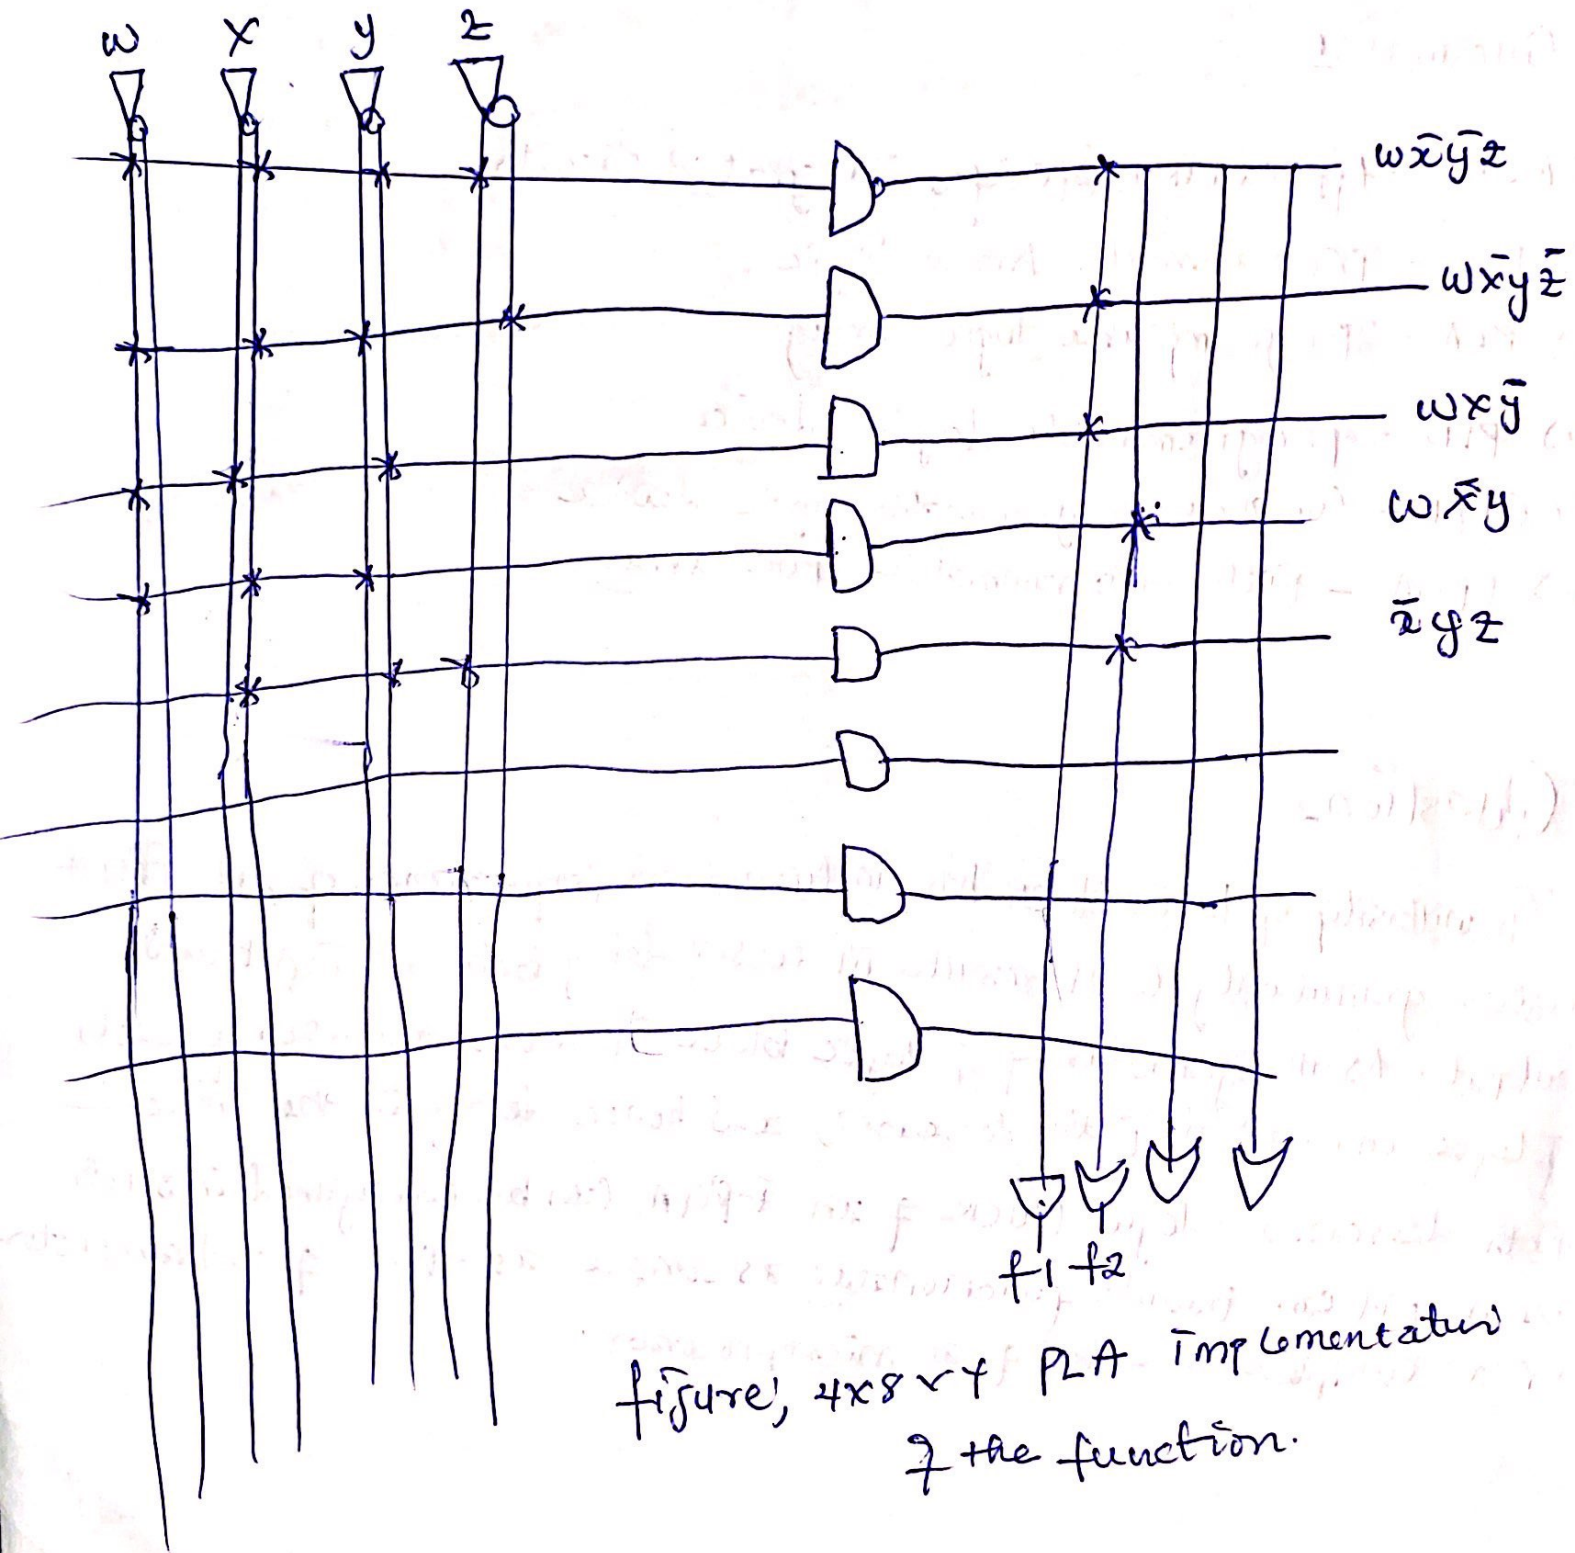 w x y z
wx̄ȳz
wx̄yz̄
wxȳ
wx̄y
x̄yz
f1 f2
figure, 4x8x4 PLA implementation
of the function.